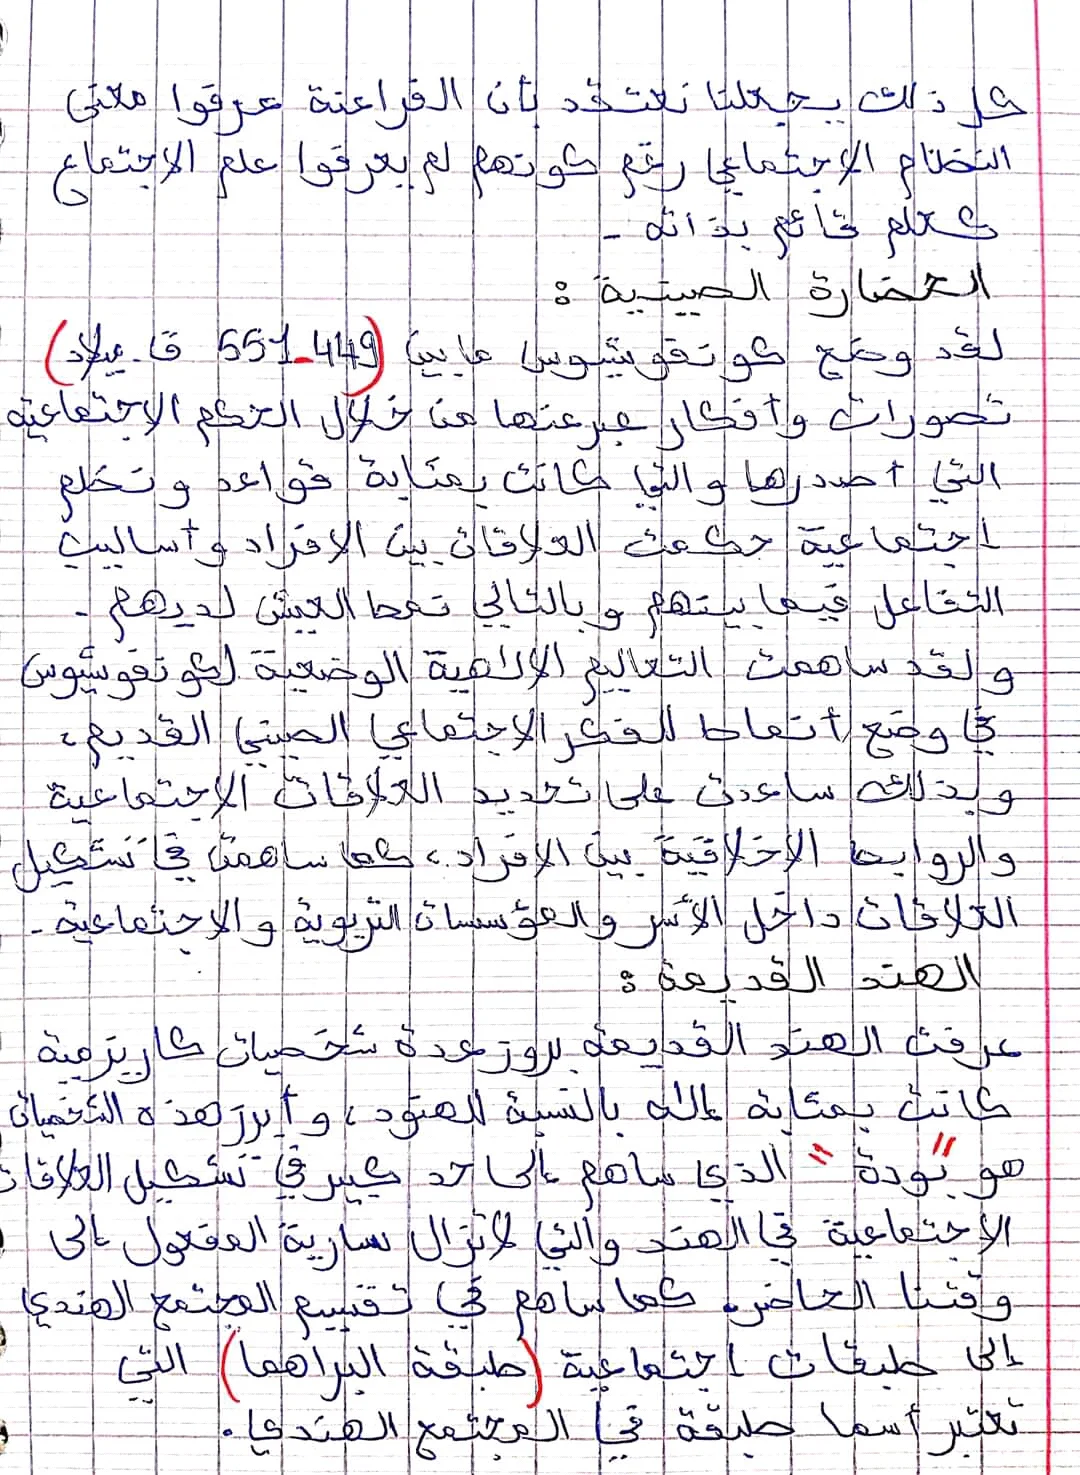 كل ذلك يجعلنا نعتقد بأن الفراعنة عرفوا معنى
النظام الإجتماعي رغم كونهم لم يعرفوا علم الاجتماع
كعلم قائم بذاته -
الحضارة الصينية :
لقد وضع كونفوشيوس ما بين (449-551 ق. ميلاد)
تصورات وأفكار عبر عنها من خلال الحكم الاجتماعية
التي أصدرها والتي كانت بمثابة قواعد ونظم
اجتماعية حكمت العلاقات بين الافراد وأساليب
التفاعل فيما بينهم وبالتالي نمط العيش لديهم -
ولقد ساهمت التعاليم الإلاهية الوضعية لكونفوشيوس
في وضع أنماط للفكر الاجتماعي الصيني القديم،
وبذلك ساعدت على تحديد العلاقات الإجتماعية
والروابط الاخلاقية بين الافراد، كما ساهمت في تشكيل
العلاقات داخل الأسر والمؤسسات التربوية والاجتماعية -
الهند القديمة :
عرفت الهند القديمة بروز عدة شخصيات كاريزمية
كانت بمثابة إله بالنسبة للهنود، وأبرز هذه الشخصيات
هو "بودة" الذي ساهم إلى حد كبير في تشكيل العلاقات
الإجتماعية في الهند والتي لاتزال سارية المفعول إلى
وقتنا الحاضر، كما ساهم في تقسيم المجتمع الهندي
إلى طبقات اجتماعية (طبقة البراهما) التي
تعتبر أسما طبقة في المجتمع الهندي.